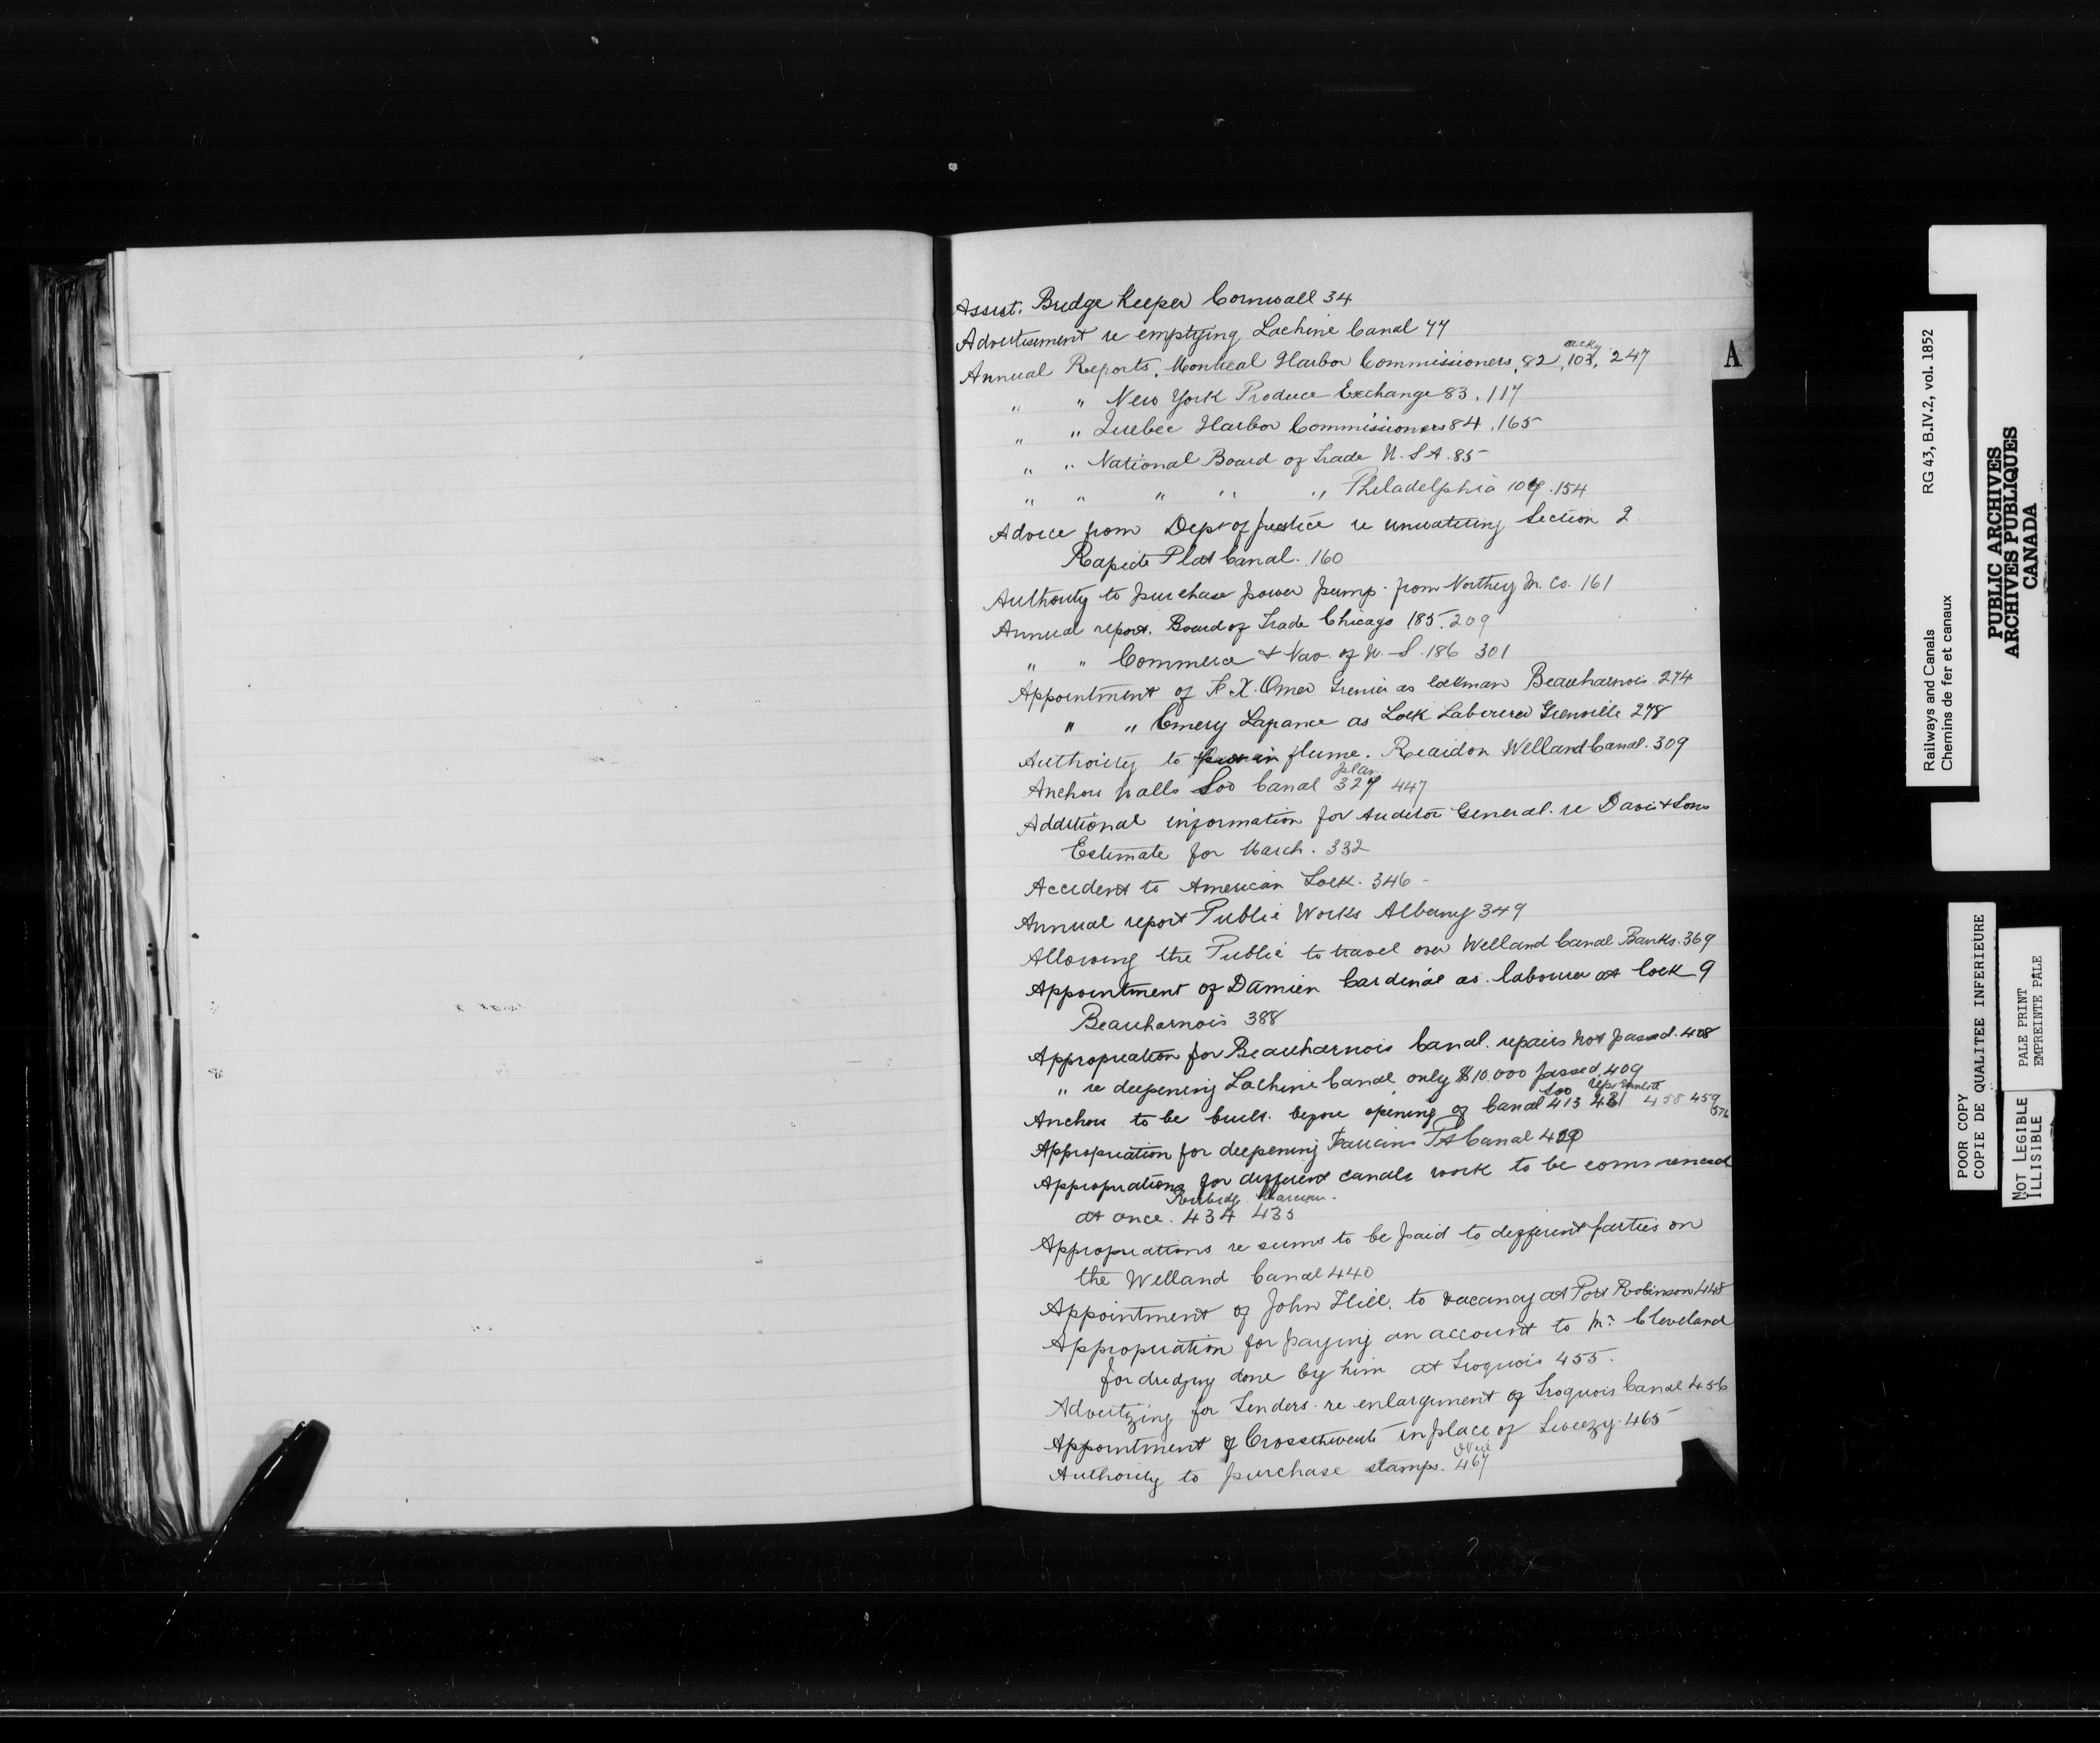 Assist. Bridge Keeper Cornwall 34
Advertisement re emptying Lachine Canal 77
Annual Reports. Montreal Harbor Commissioners, 82, 103, 247
" " New York Produce Exchange 83. 117
" " Quebec Harbor Commissioners 84. 165
" " National Board of Trade U.S.A. 85
" " " " " Philadelphia 107. 154
Advice from Dept of Justice re unwatering Section 2
Rapide Plat Canal. 160
Authority to purchase power pump from Northey M. Co. 161
Annual report. Board of Trade Chicago 185. 209
" " Commerce & Nav. of U.S. 186 301
Appointment of F. X. Omer Grenier as lockman Beauharnois. 274
" " Emery Lapance as Lock Labourer Grenville 278
Authority to put in flume. Reardon Welland Canal. 309
plan
Anchor walls Soo Canal 327 447
Additional information for Auditor General. re Davis & Sons
Estimate for March. 332
Accident to American Lock. 346 -
Annual report Public Works Albany 349
Allowing the Public to travel over Welland Canal Banks. 369
Appointment of Damien Cardinal as labourer at lock 9
Beauharnois 388
Appropriation for Beauharnois Canal. repairs not passed. 408
" re deepening Lachine Canal only $10.000 passed. 409
Soo
Anchor to be built. before opening of Canal 413 431 458 459
Appropriation for deepening Farrans Pt Canal
Appropriations for different canals work to be commenced
at once. 434 435
Appropriations re sums to be paid to different parties on
the Welland Canal 440
Appointment of John Hill. to vacancy at Port Robinson 448
Appropriation for paying an account to Mr Cleveland
for dredging done by him at Iroquois 455.
Advertizing for Tenders. re enlargement of Iroquois Canal 456
Appointment of Crossthwaite in place of Sweezy. 465
Authority to purchase stamps. 467
A
Railways and Canals RG 43, B.IV.2, vol. 1852
Chemins de fer et canaux
PUBLIC ARCHIVES
ARCHIVES PUBLIQUES
CANADA
POOR COPY
COPIE DE QUALITEE INFERIEURE
PALE PRINT
EMPREINTE PALE
NOT LEGIBLE
ILLISIBLE